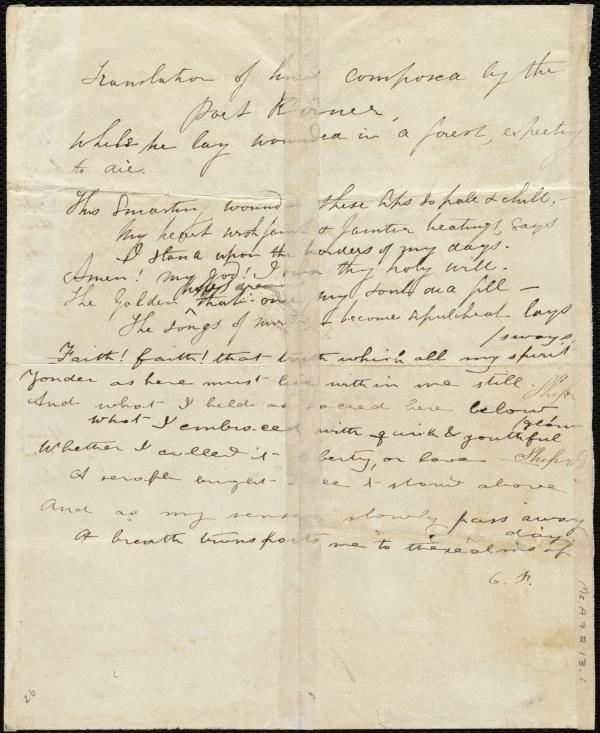 Translation of lines composed by the
Poet Körner,
While he lay wounded in a forest, expecting
to die.
This smarting wound – these lips so pale & chill, –
My heart with faint & fainter beatings, says
I stand upon the borders of my days.
Amen! my God! I own thy holy will.
hopes dream
The Golden that once my soul did fill –
The songs of mirth, become sepulchral lays
/ sways,
Faith! faith! that truth which all my spirit
Yonder as here must live within me still.
And what I held as sacred here below
What I embraced with quick & youthful
glow
Whether I called it liberty, or love
A seraph bright I see it stand above
And as my senses slowly pass away
day
A breath transports me to the realms of
C. F.
Ms. A 9 2 13. 1
26